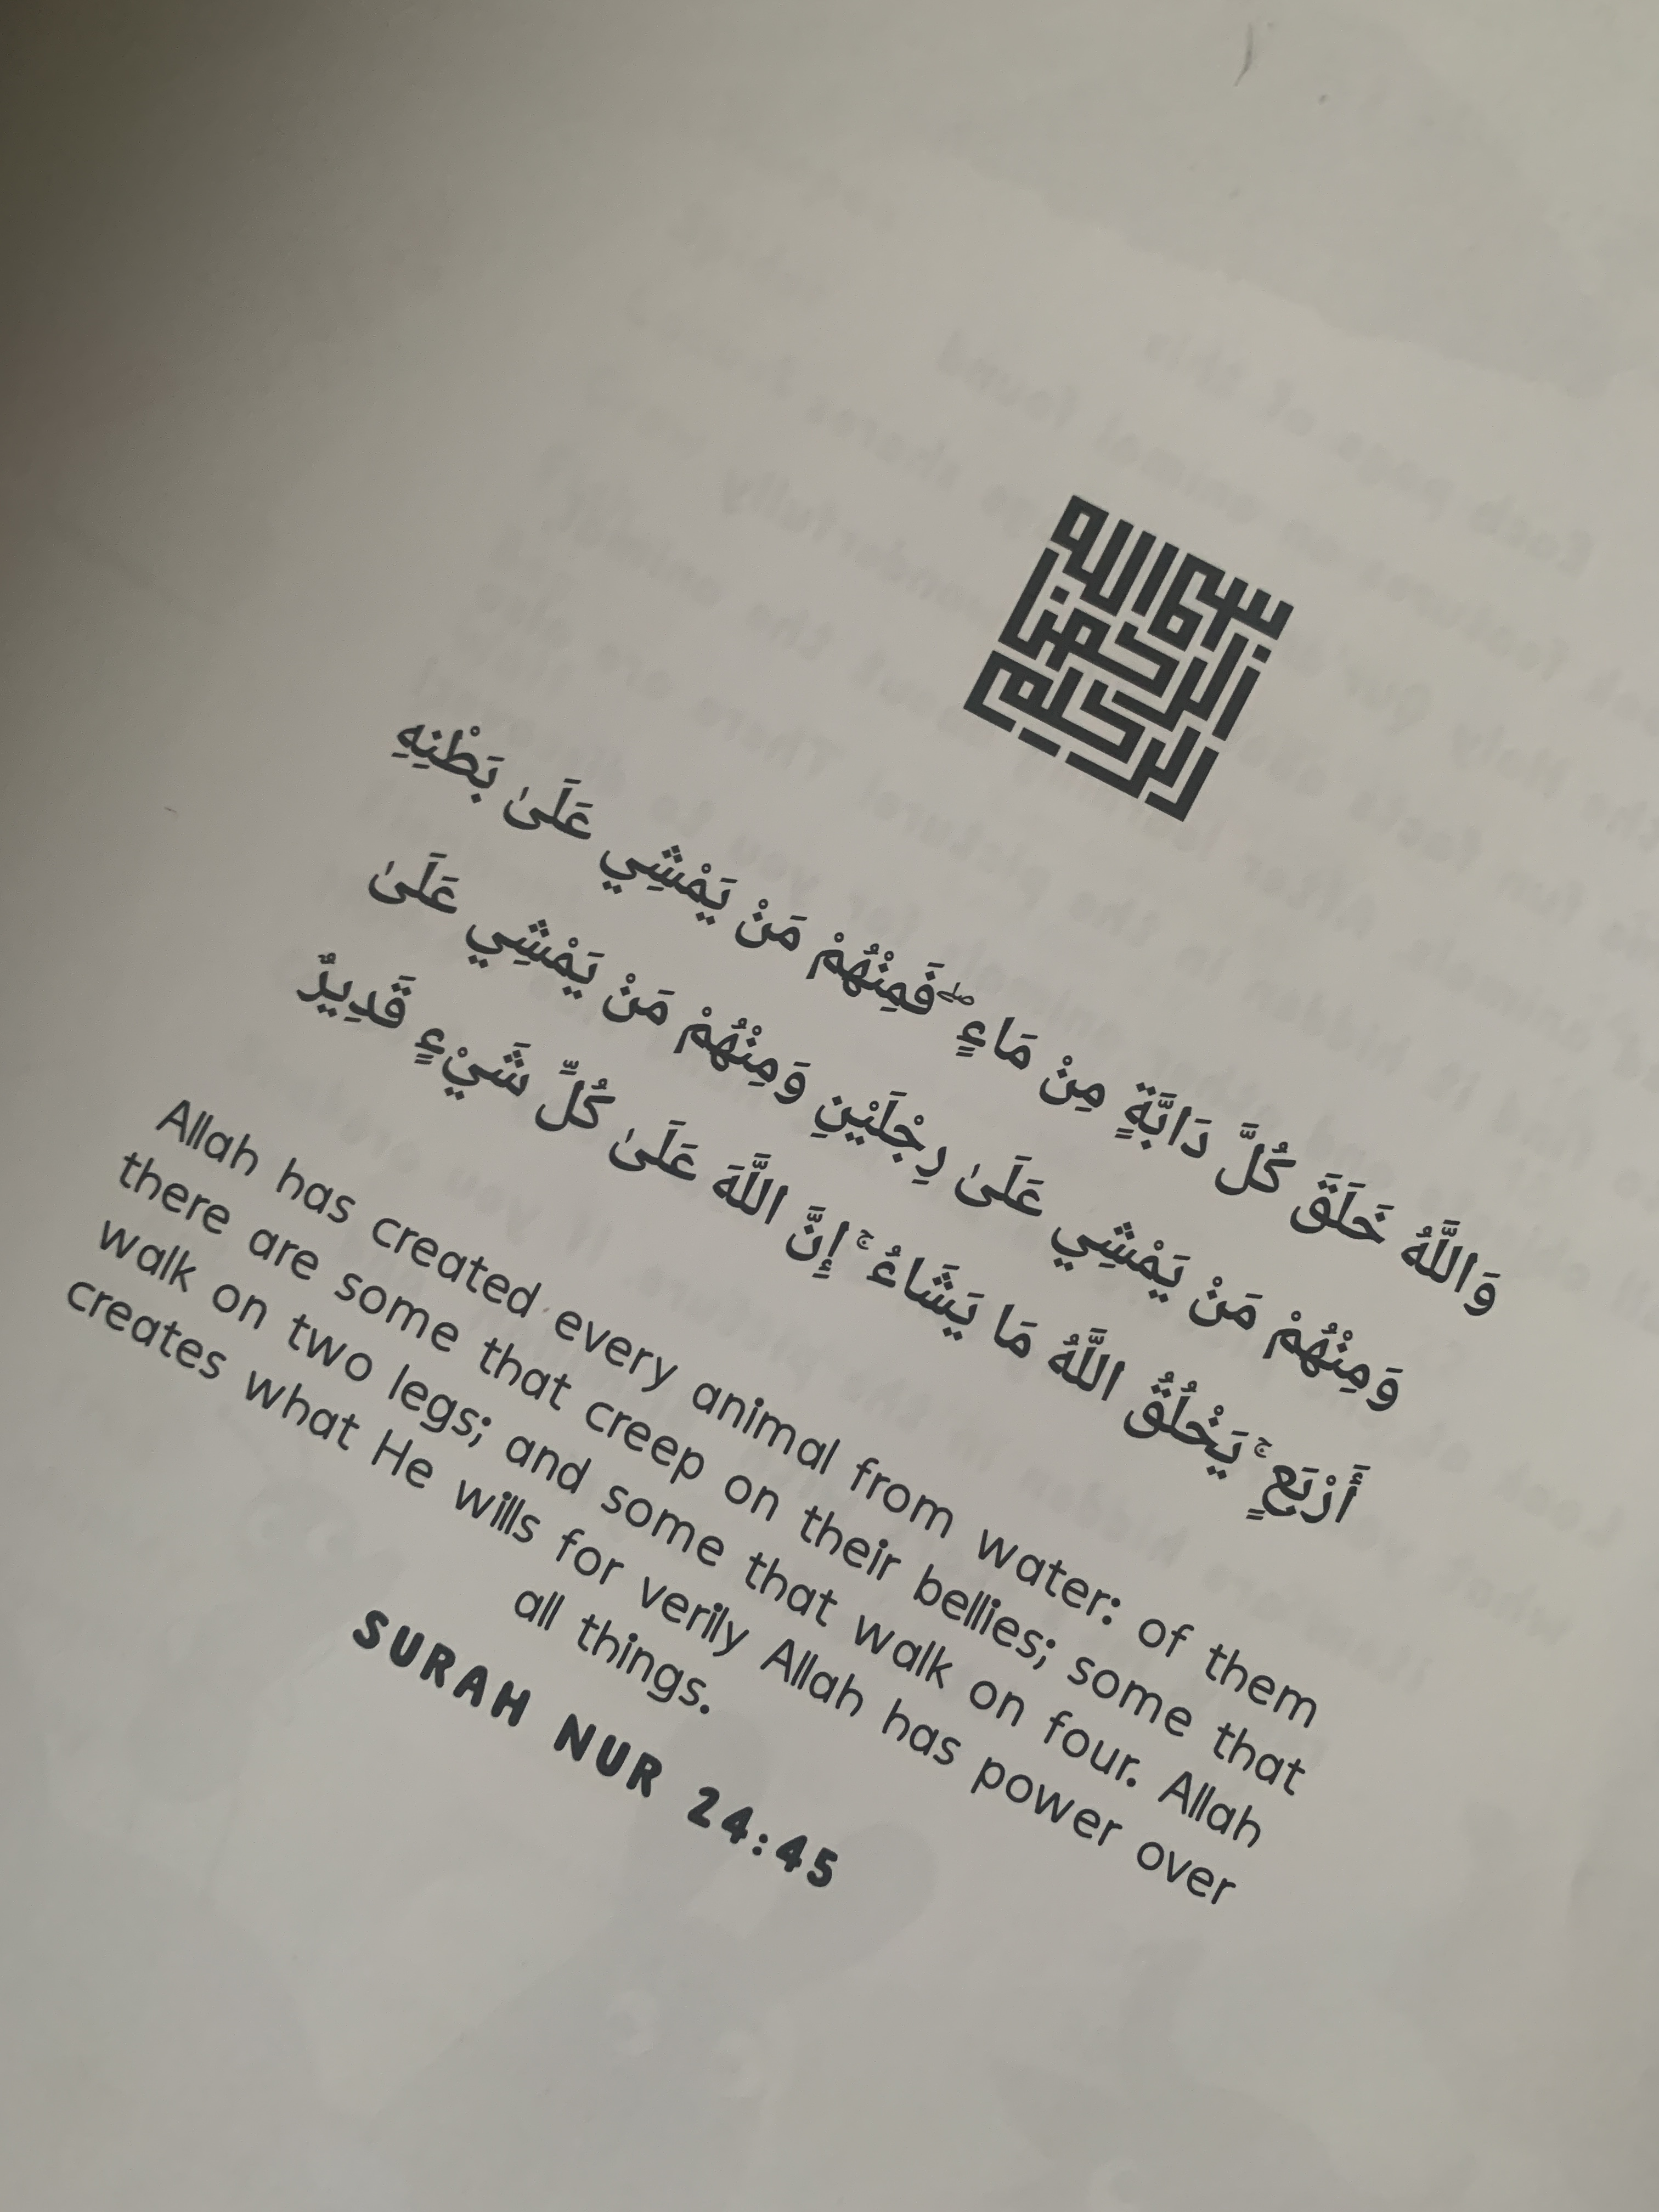 بسم الله
الرحمن
الرحيم
وَاللَّهُ خَلَقَ كُلَّ دَابَّةٍ مِنْ مَاءٍ ۖ فَمِنْهُمْ مَنْ يَمْشِي عَلَىٰ بَطْنِهِ
وَمِنْهُمْ مَنْ يَمْشِي عَلَىٰ رِجْلَيْنِ وَمِنْهُمْ مَنْ يَمْشِي عَلَىٰ
أَرْبَعٍ ۚ يَخْلُقُ اللَّهُ مَا يَشَاءُ ۚ إِنَّ اللَّهَ عَلَىٰ كُلِّ شَيْءٍ قَدِيرٌ
Allah has created every animal from water: of them
there are some that creep on their bellies; some that
walk on two legs; and some that walk on four. Allah
creates what He wills for verily Allah has power over
all things.
SURAH NUR 24:45